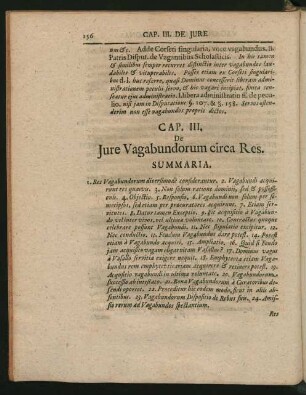 156 CAP. III. DE JURE
num &c. Adde Corsett singularia, voce vagabundus, &
Patris Disput. de Vagantibus Scholasticis. In his tamen
& similibus semper recurret distinctio inter vagabundos lau-
dabiles & vituperabiles. Posset etiam ex Corsett singulari-
bus d. l. huc referre, quasi Dominus concesserit liberam ad-
ministrationem peculii servo, & is vagari incipiat, finita cen-
seatur ejus administratio. l. libera administratio ff. de pecu-
lio, nisi jam in Disputatione §. 107. & §. 158. servos osten-
derim non esse vagabundos proprie dictos.
CAP. III.
De
Jure Vagabundorum circa Res.
SUMMARIA.
1. Res Vagabundorum diversimode considerantur. 2. Vagabundi acqui-
runt res quatvis. 3. Non solum ratione dominii, sed & possessi-
onis. 4. Objectio. 5. Responsio. 6. Vagabundi non solum per
semetipsos, sed etiam per procuratores acquirunt. 7. Etiam ser-
vitutes. 8. Datur tamen Exceptio. 9. Sit acquisitio à Vagabun-
do vel inter vivos, vel ultima voluntate. 10. Contractus quosque
celebrare possunt Vagabundi. 11. Nec requiritur, ut recipiatur.
12. Nec conditio. 13. Feudum Vagabundus dare potest. 14. Potest
etiam à Vagabundo acquiri. 15. Ampliatio. 16. Quid si Feudo
jam acquisito vagam eligat vitam Vasallus? 17. Dominus vagus
à Vasallo servitia exigere nequit. 18. Emphyteuta etiam Vaga-
bundus rem emphyteuticariam acquirere & retinere potest. 19.
Acquisitio vagabundi in ultima voluntate. 20. Vagabundorum
successio ab intestato. 21. Bona Vagabundorum à Curatoribus de-
fendi oportet. 22. Proceditur hic eodem modo, sicut in aliis ab-
sentibus. 23. Vagabundorum Dispositio de Rebus suis, 24. Amis-
sio rerum ad Vagabundos spectantium.
Res